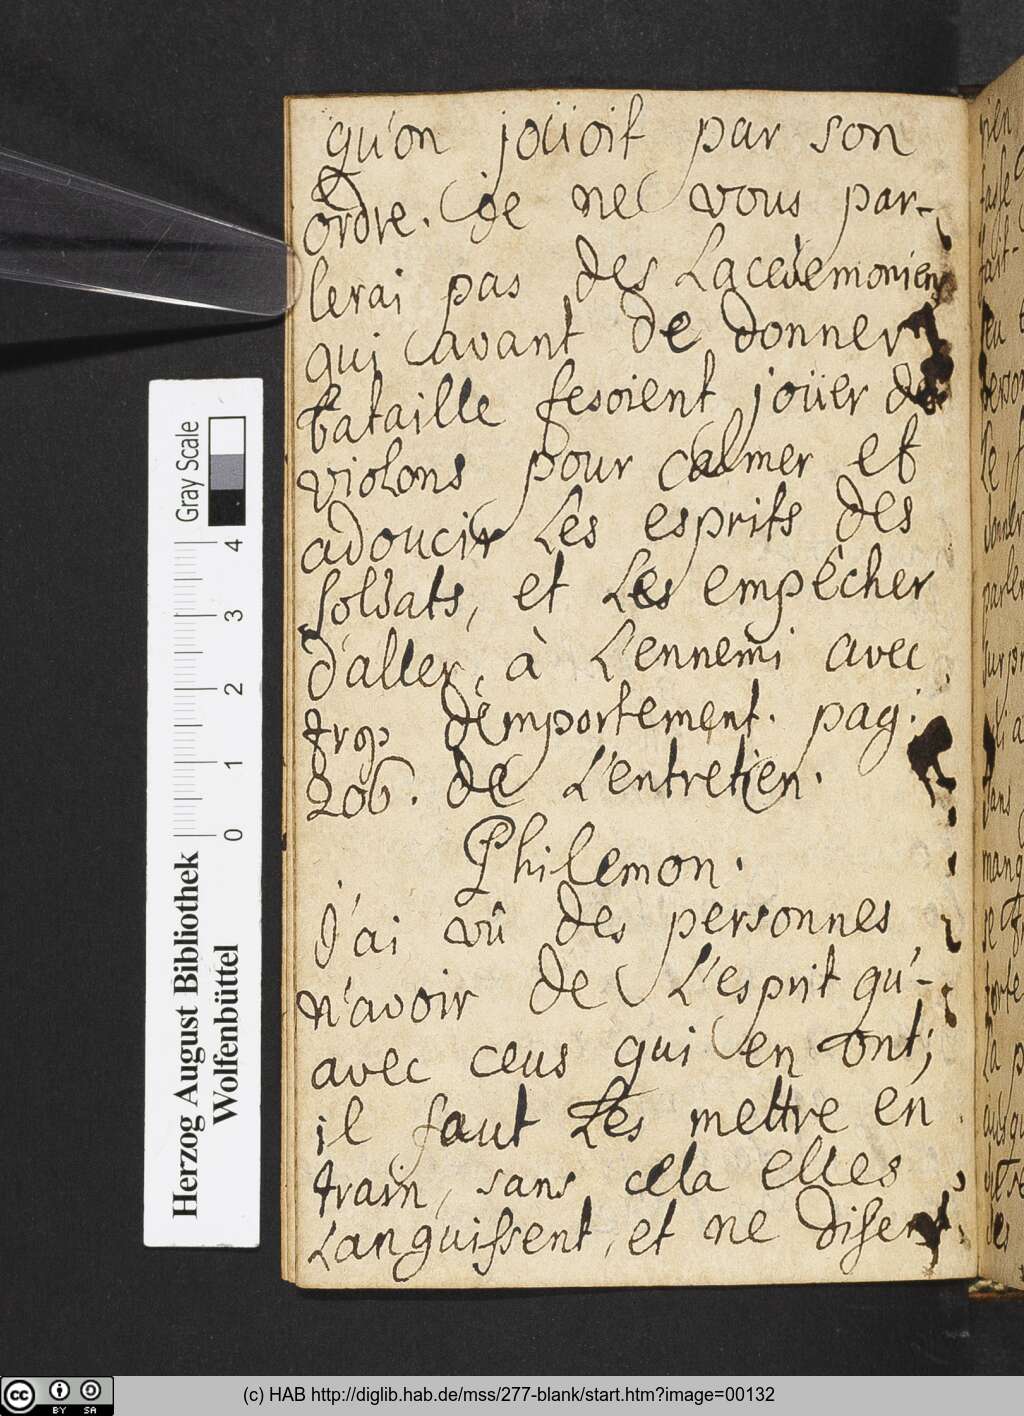 qu'on joüoit par son
ordre. je ne vous par-
lerai pas des Lacedemoniens
qui avant de donner
bataille fesoient joüer de
violons pour calmer et
adoucir Les esprits des
soldats, et Les empêcher
d'aller, à L'ennemi avec
trop d'emportement. pag:
206. de L'entretien.
Philemon.
J'ai vû des personnes
n'avoir de L'esprit qu'-
avec ceus qui en ont;
il faut Les mettre en
train, sans cela elles
Languissent, et ne disent
Gray Scale
0 1 2 3 4
Herzog August Bibliothek
Wolfenbüttel
(c) HAB http://diglib.hab.de/mss/277-blank/start.htm?image=00132
cc BY SA